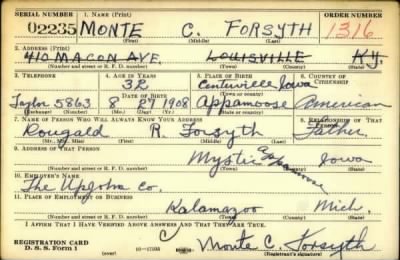 SERIAL NUMBER 1. NAME (Print) ORDER NUMBER
02235 MONTE C. FORSYTH 1316
(First) (Middle) (Last)
2. ADDRESS (Print)
410 MACON AVE. LOUISVILLE KY.
(Number and street or R. F. D. number) (Town) (County) (State)
3. TELEPHONE 4. AGE IN YEARS 5. PLACE OF BIRTH 6. COUNTRY OF CITIZENSHIP
32 Centerville Iowa
DATE OF BIRTH (Town or county)
Taylor 5863 8 27 1908 Appamoose American
(Exchange) (Number) (Mo.) (Day) (Yr.) (State or country)
7. NAME OF PERSON WHO WILL ALWAYS KNOW YOUR ADDRESS 8. RELATIONSHIP OF THAT PERSON
Rougald R. Forsyth Father
(Mr., Mrs., Miss) (First) (Middle) (Last)
9. ADDRESS OF THAT PERSON
Mystic Iowa
(Number and street or R. F. D. number) (Town) (County) (State)
10. EMPLOYER'S NAME
The Upjohn Co.
11. PLACE OF EMPLOYMENT OR BUSINESS
Kalamazoo Mich.
(Number and street or R. F. D. number) (Town) (County) (State)
I AFFIRM THAT I HAVE VERIFIED ABOVE ANSWERS AND THAT THEY ARE TRUE.
REGISTRATION CARD
D. S. S. Form 1 Monte C. Forsyth
(Registrant's signature)